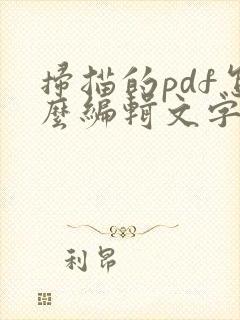 掃描的pdf怎
麼編輯文字
利昂